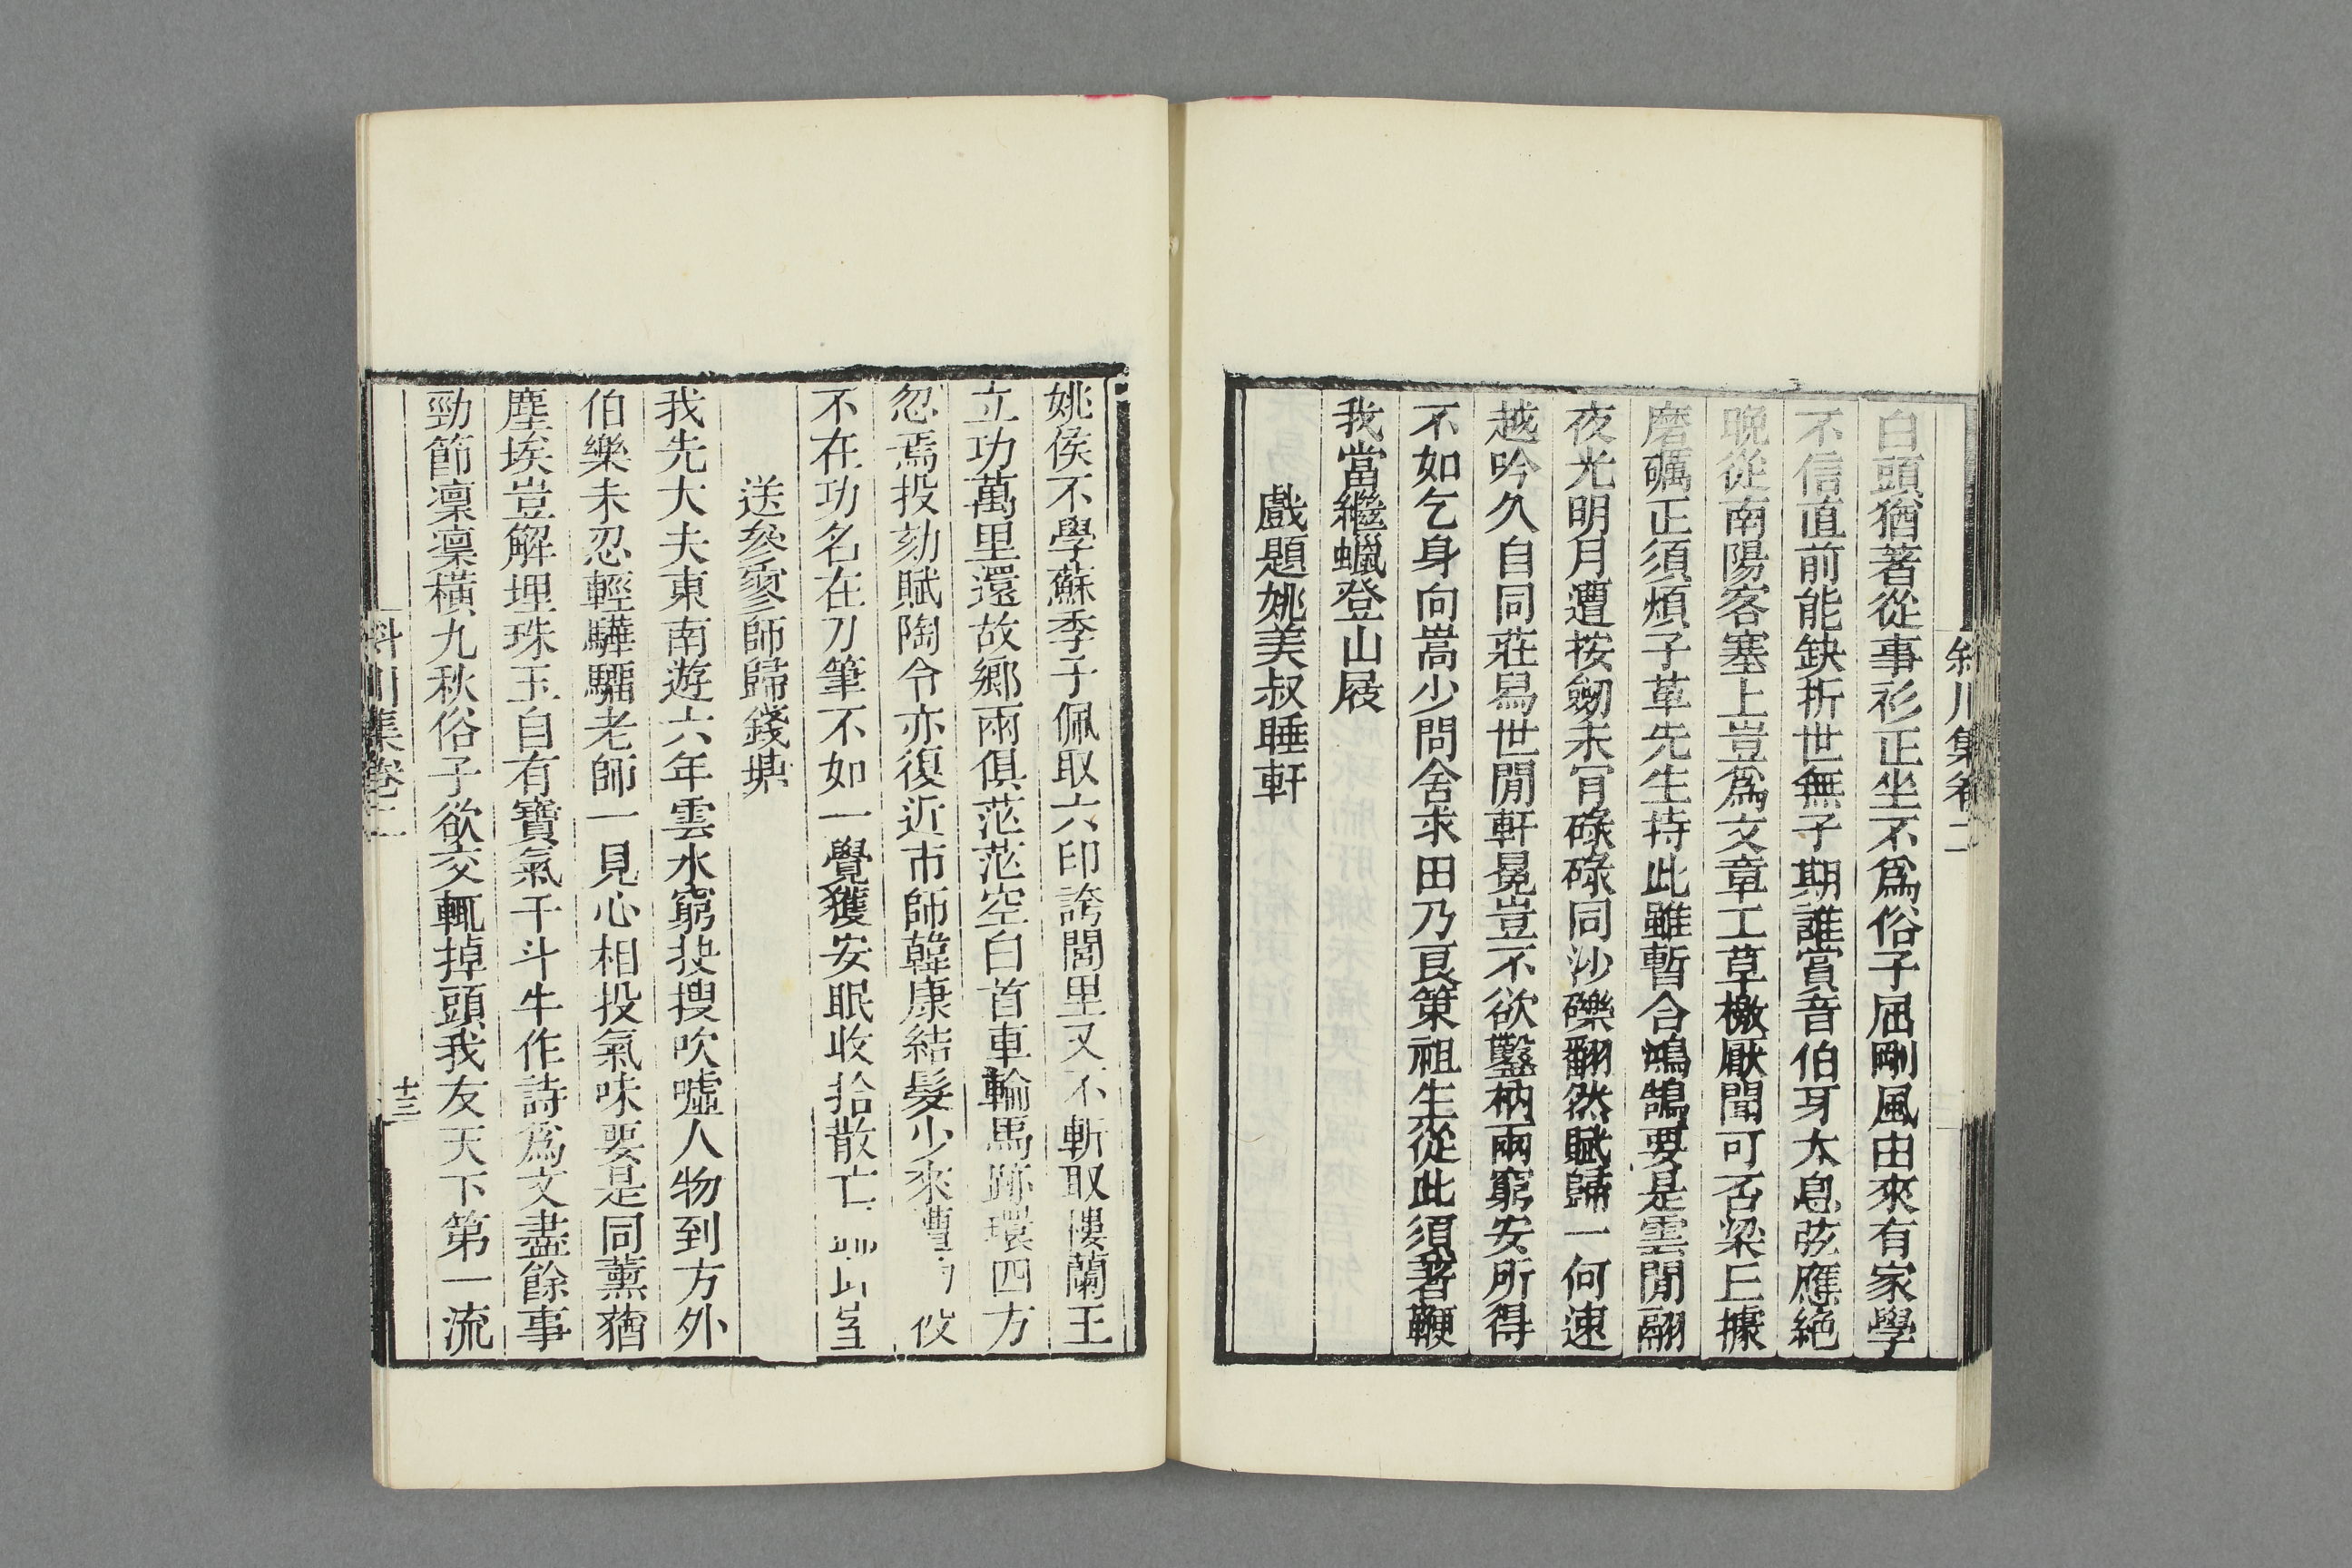 斜川集卷二
白頭猶著從事衫正坐不爲俗子屈剛風由來有家學
不信直前能缺折世無子期誰賞音伯牙太息弦應絶
晚從南陽客塞上豈爲文章工草檄厭聞可否梁上據
磨礪正須煩子革先生持此雖暫合鴻鵠要是雲閒翮
夜光明月遭按劒未肎碌碌同沙礫翻然賦歸一何速
越吟久自同莊舄世閒軒冕豈不欲鑿枘兩窮安所得
不如乞身向嵩少問舍求田乃良策祖生從此須著鞭
我當繼蠟登山屐
戲題姚美叔睡軒
姚侯不學蘇季子佩取六印誇閭里又不斬取樓蘭王
立功萬里還故鄉兩俱茫茫空白首車輪馬跡環四方
忽焉投劾賦陶令亦復近市師韓康結髮少來遭 伎
不在功名在刀筆不如一覺獲安眠收拾散亡
送參寥師歸錢塘
我先大夫東南遊六年雲水窮抉搜吹噓人物到方外
伯樂未忍輕驊騮老師一見心相投氣味要是同薰蕕
塵埃豈解埋珠玉自有寶氣干斗牛作詩爲文盡餘事
勁節凛凛橫九秋俗子欲交輒掉頭我友天下第一流
斜川集卷二
十三